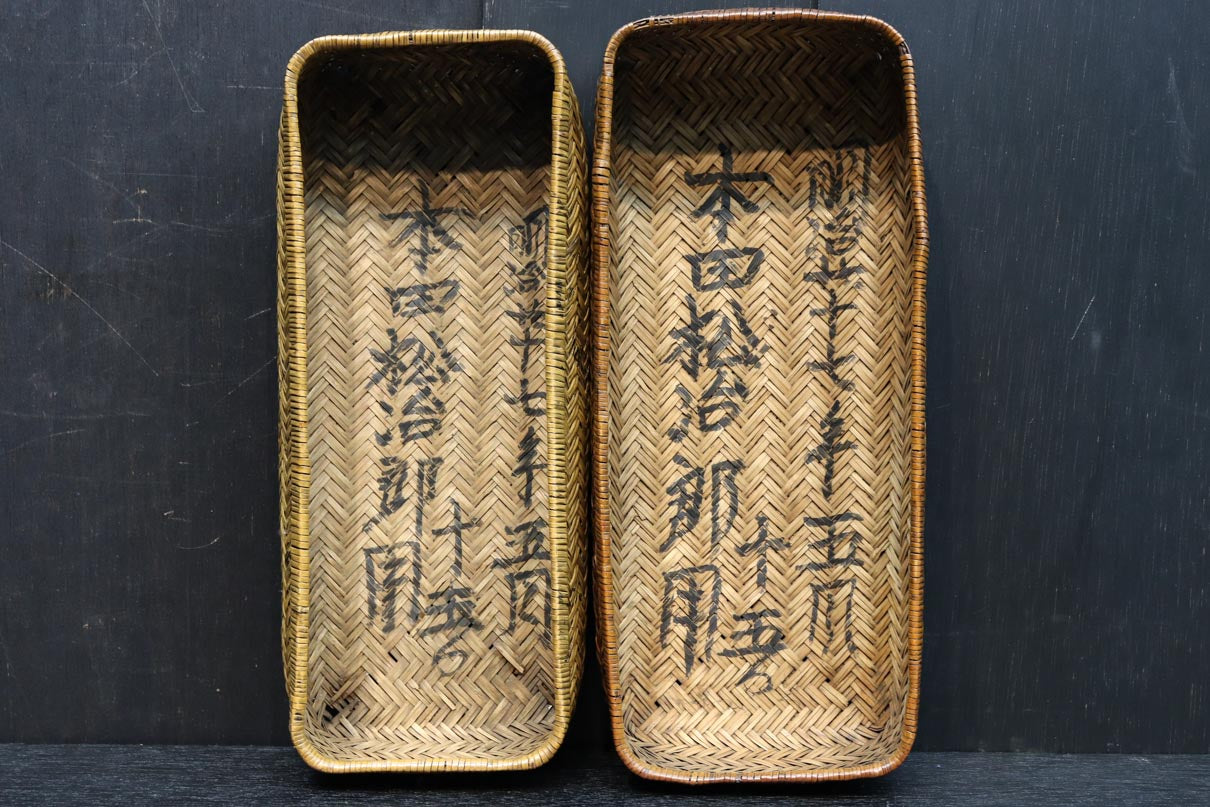 明治三十七年五月
十五日
本田松治郎用
明治三十七年五月
十五日
本田松治郎用